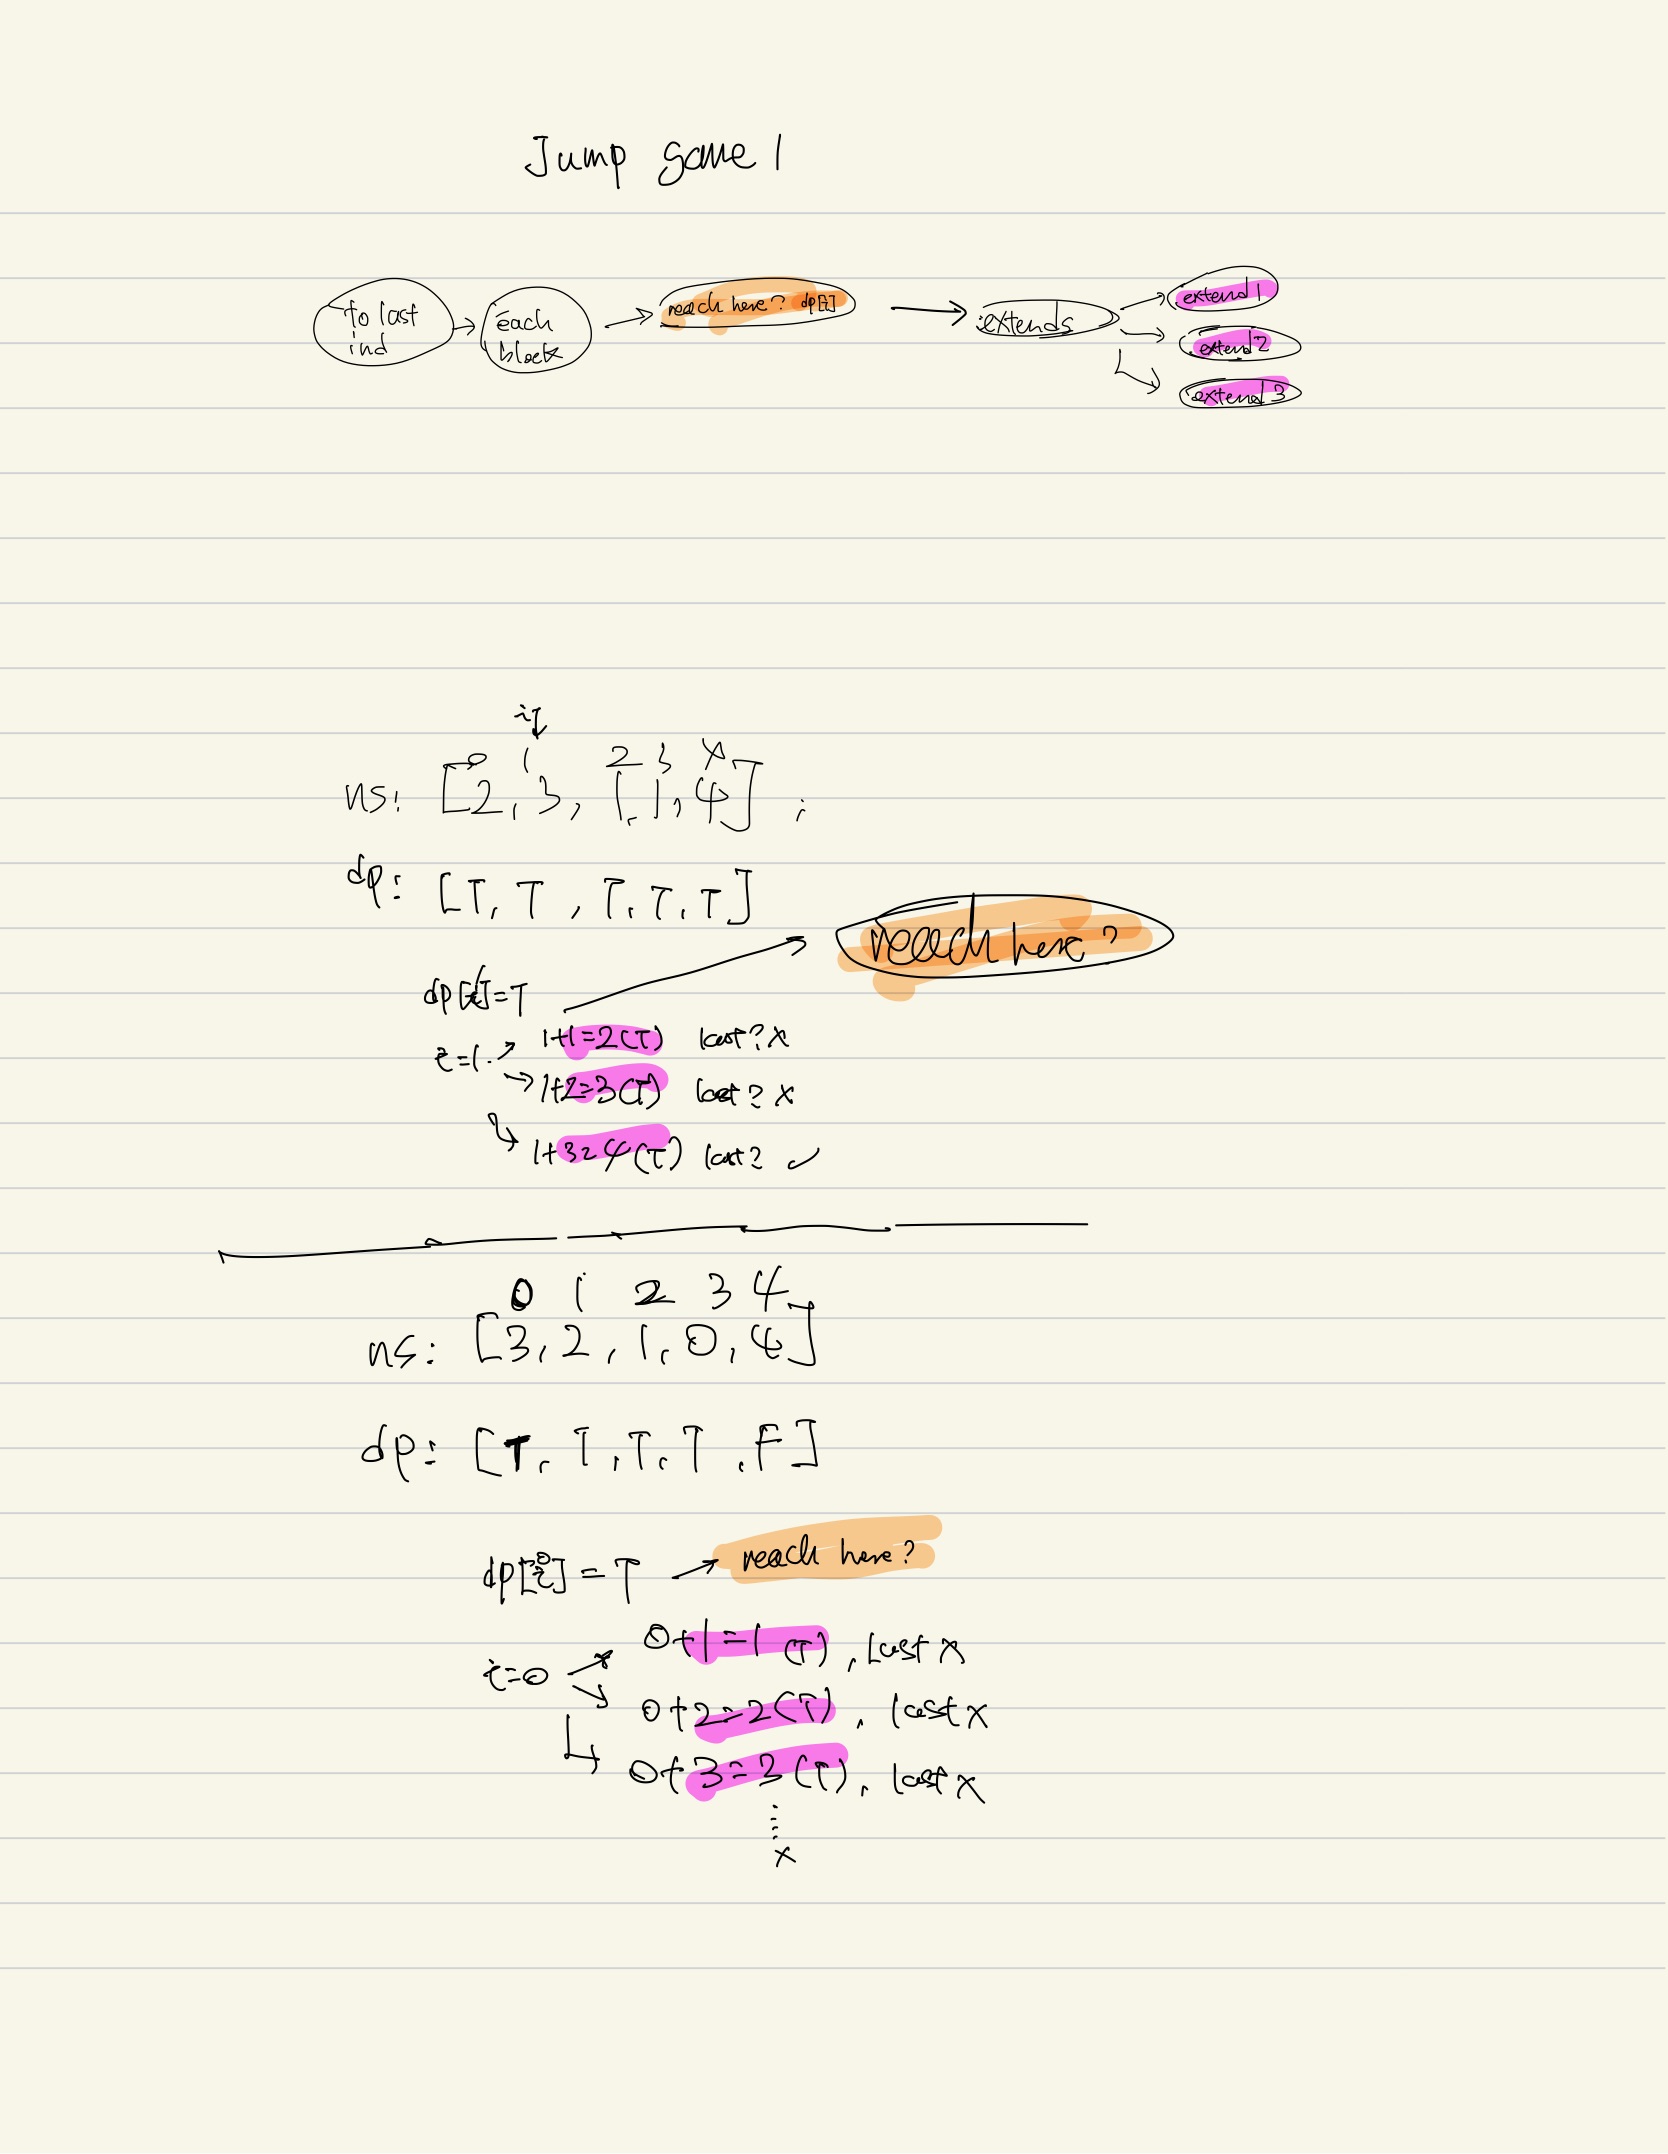 Jump game 1
to last ind
each block
reach here? dp[i]
extends
extend 1
extend 2
extend 3
i
0 1 2 3 4
ns: [2, 3, 1, 1, 4] ;
dp: [T, T, T, T, T]
reach here?
dp[i]=T
1+1=2(T) last? x
i=1
1+2=3(T) last? x
1+3=4(T) last? ✓
0 1 2 3 4
ns: [3, 2, 1, 0, 4]
dp: [T, T, T, T, F]
reach here?
dp[0] = T
0+1=1(T), last x
i=0
0+2=2(T), last x
0+3=3(T), last x
x